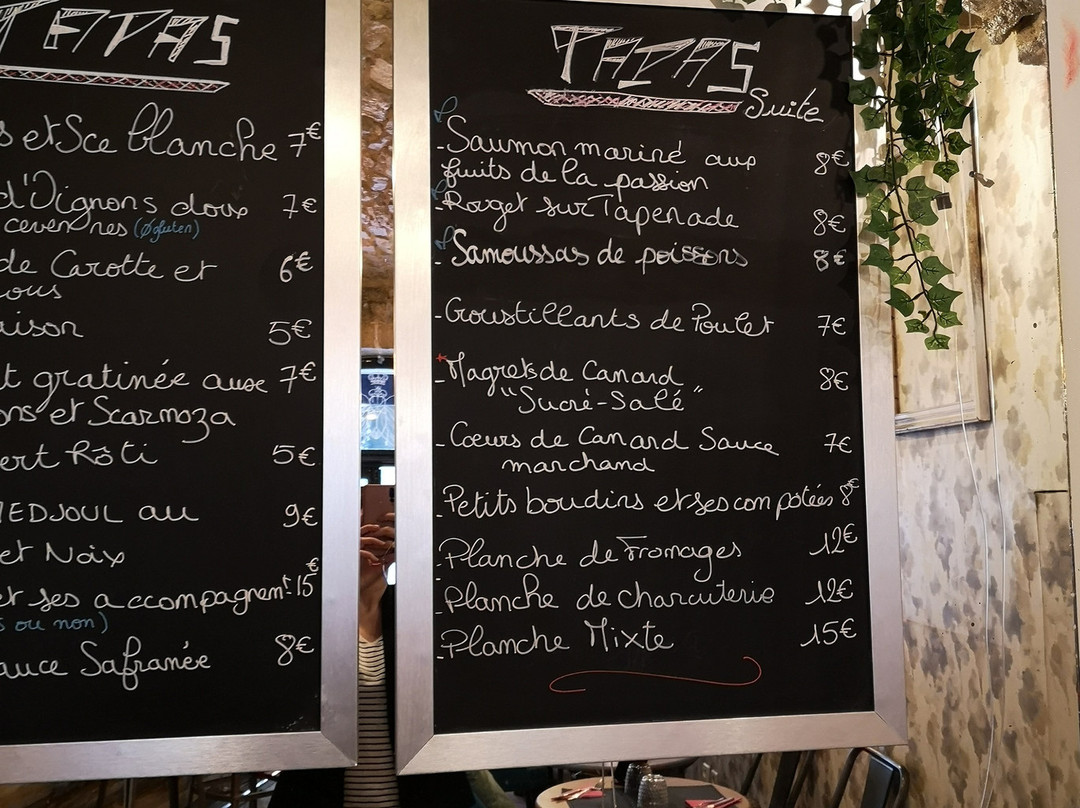 TAPAS
s et Sce blanche 7€
d'Oignons doux 7€
cevennes (Ø gluten)
de Carotte et 6€
ous
aison 5€
t gratinée aux 7€
ons et Scarmoza
ert Rôti 5€
MEDJOUL au 9€
et Noix
et ses accompagnemt 15€
s ou non)
auce Safranée 8€
TAPAS
Suite
- Saumon mariné aux 8€
fruits de la passion
- Rouget sur Tapenade 8€
- Samoussas de poissons 8€
- Croustillants de Poulet 7€
- Magrets de Canard 8€
"Sucré-Salé"
- Cœurs de Canard Sauce 7€
marchand
- Petits boudins et ses compotées 8€
- Planche de Fromages 12€
- Planche de charcuterie 12€
- Planche Mixte 15€